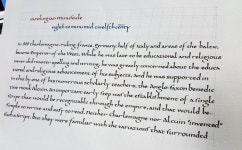 carolingian minuscule
eighth century until twelfth century
In 800 charlemagne, ruling france, germany, half of italy and areas of the balea,
became Emperor of the West. While he was later to be educational and religious
never did master spelling and writing, he was greatly concerned about the educa
tional and religious advancement of his subjects. And he was supported in
this by one of numerous scholarly teachers, the Anglo-Saxon benedic
tine monk Alcuin. An important early step was the establishment of a single
script that would be recognizable through the empire, and that would be
simple to write and easily copied. Neither charlemagne nor Alcuin 'invented'
such a script, but they were familiar with the variations that surrounded